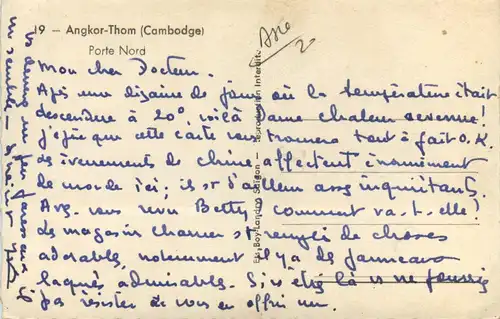 19 — Angkor-Thom (Cambodge)
Porte Nord
Asie
Mon cher Docteur.
Après une dizaine de jours où la température était
descendue à 20°, voilà dame chaleur revenue!
J'espère que cette carte vous trouvera tout à fait O.K.
Les évènements de Chine affectent énormément
de monde ici; ils st d'ailleurs assez inquiétants.
Avez vous revu Betty? comment va-t-elle!
Les magasins chinois st remplis de choses
adorables, notamment il y a des panneaux
laqués admirables. Si v. étiez là vs ne pourriez
pas résister de vous en offrir un.
Ets Boy-Landry, Saïgon — Reproduction Interdite